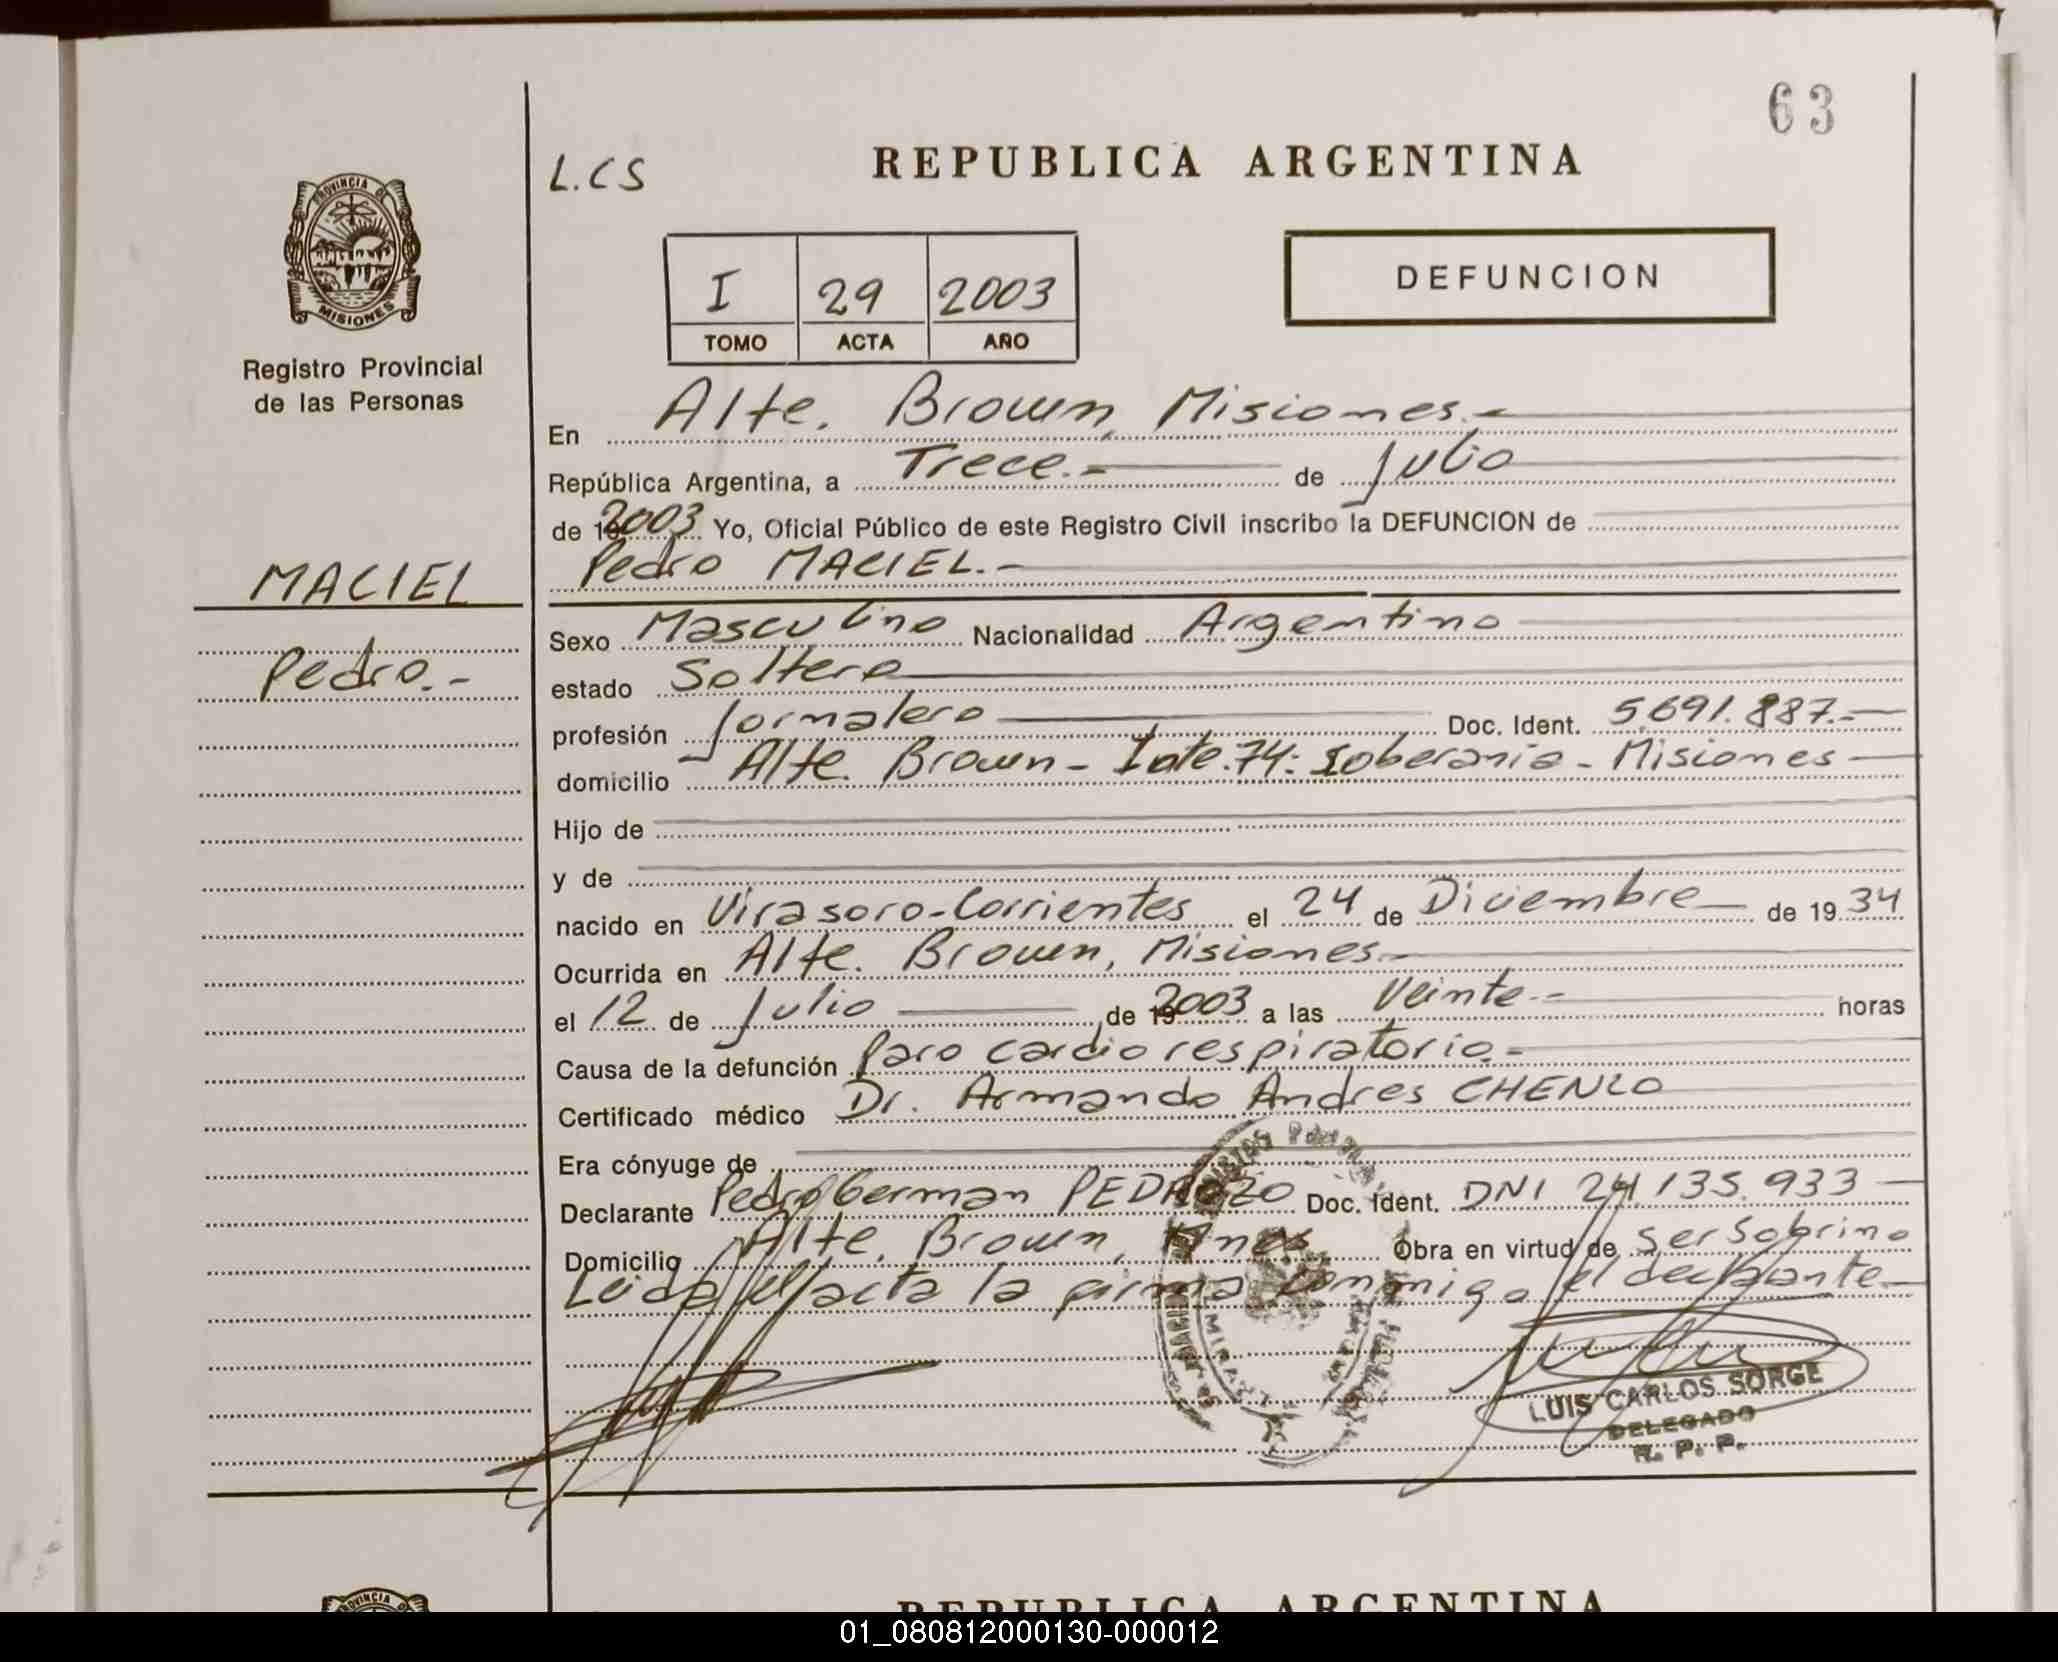 63
L.CS
REPUBLICA ARGENTINA
PROVINCIA DE
MISIONES
Registro Provincial
de las Personas
I 29 2003
TOMO ACTA AÑO
DEFUNCION
En Alte. Brown, Misiones.-
República Argentina, a Trece.- de Julio
de 2003 Yo, Oficial Público de este Registro Civil inscribo la DEFUNCION de
Pedro MACIEL.-
MACIEL
Pedro.-
Sexo Masculino Nacionalidad Argentino
estado Soltero
profesión Jornalero Doc. Ident. 5.691.887.-
domicilio Alte. Brown - Lote.74: Soberania - Misiones
Hijo de
y de
nacido en Virasoro-Corrientes el 24 de Diciembre de 1934
Ocurrida en Alte. Brown, Misiones.-
el 12 de Julio de 2003 a las Veinte.- horas
Causa de la defunción Paro cardio respiratorio.-
Certificado médico Dr. Armando Andres CHENLO
Era cónyuge de
Declarante Pedro German PEDROZO Doc. Ident. DNI 24.135.933
Domicilio Alte. Brown, Mnes Obra en virtud de ser sobrino
Leida el acta la firma conmigo el declarante
LUIS CARLOS SORGE
DELEGADO
R. P. P.
REPUBLICA ARGENTINA
01_080812000130-000012